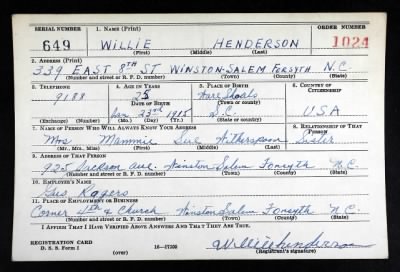 SERIAL NUMBER 1. NAME (Print) ORDER NUMBER
649 WILLIE HENDERSON 1024
(First) (Middle) (Last)
2. ADDRESS (Print)
339 EAST 8TH ST WINSTON-SALEM FORSYTH N.C.
(Number and street or R. F. D. number) (Town) (County) (State)
3. TELEPHONE 4. AGE IN YEARS 5. PLACE OF BIRTH 6. COUNTRY OF CITIZENSHIP
9188 25 Ware Shoals
DATE OF BIRTH (Town or county)
Jan 23rd 1915 S.C. USA
(Exchange) (Number) (Mo.) (Day) (Yr.) (State or country)
7. NAME OF PERSON WHO WILL ALWAYS KNOW YOUR ADDRESS 8. RELATIONSHIP OF THAT PERSON
Mrs Mammie Sue Witherspoon Sister
(Mr., Mrs., Miss) (First) (Middle) (Last)
9. ADDRESS OF THAT PERSON
925 Jackson Ave. Winston Salem Forsyth N.C.
(Number and street or R. F. D. number) (Town) (County) (State)
10. EMPLOYER'S NAME
Gus Rogers
11. PLACE OF EMPLOYMENT OR BUSINESS
Corner 4th & Church Winston Salem Forsyth N.C.
(Number and street or R. F. D. number) (Town) (County) (State)
I AFFIRM THAT I HAVE VERIFIED ABOVE ANSWERS AND THAT THEY ARE TRUE.
REGISTRATION CARD
D. S. S. Form 1 (over) 16-17105 Willie Henderson
(Registrant's signature)